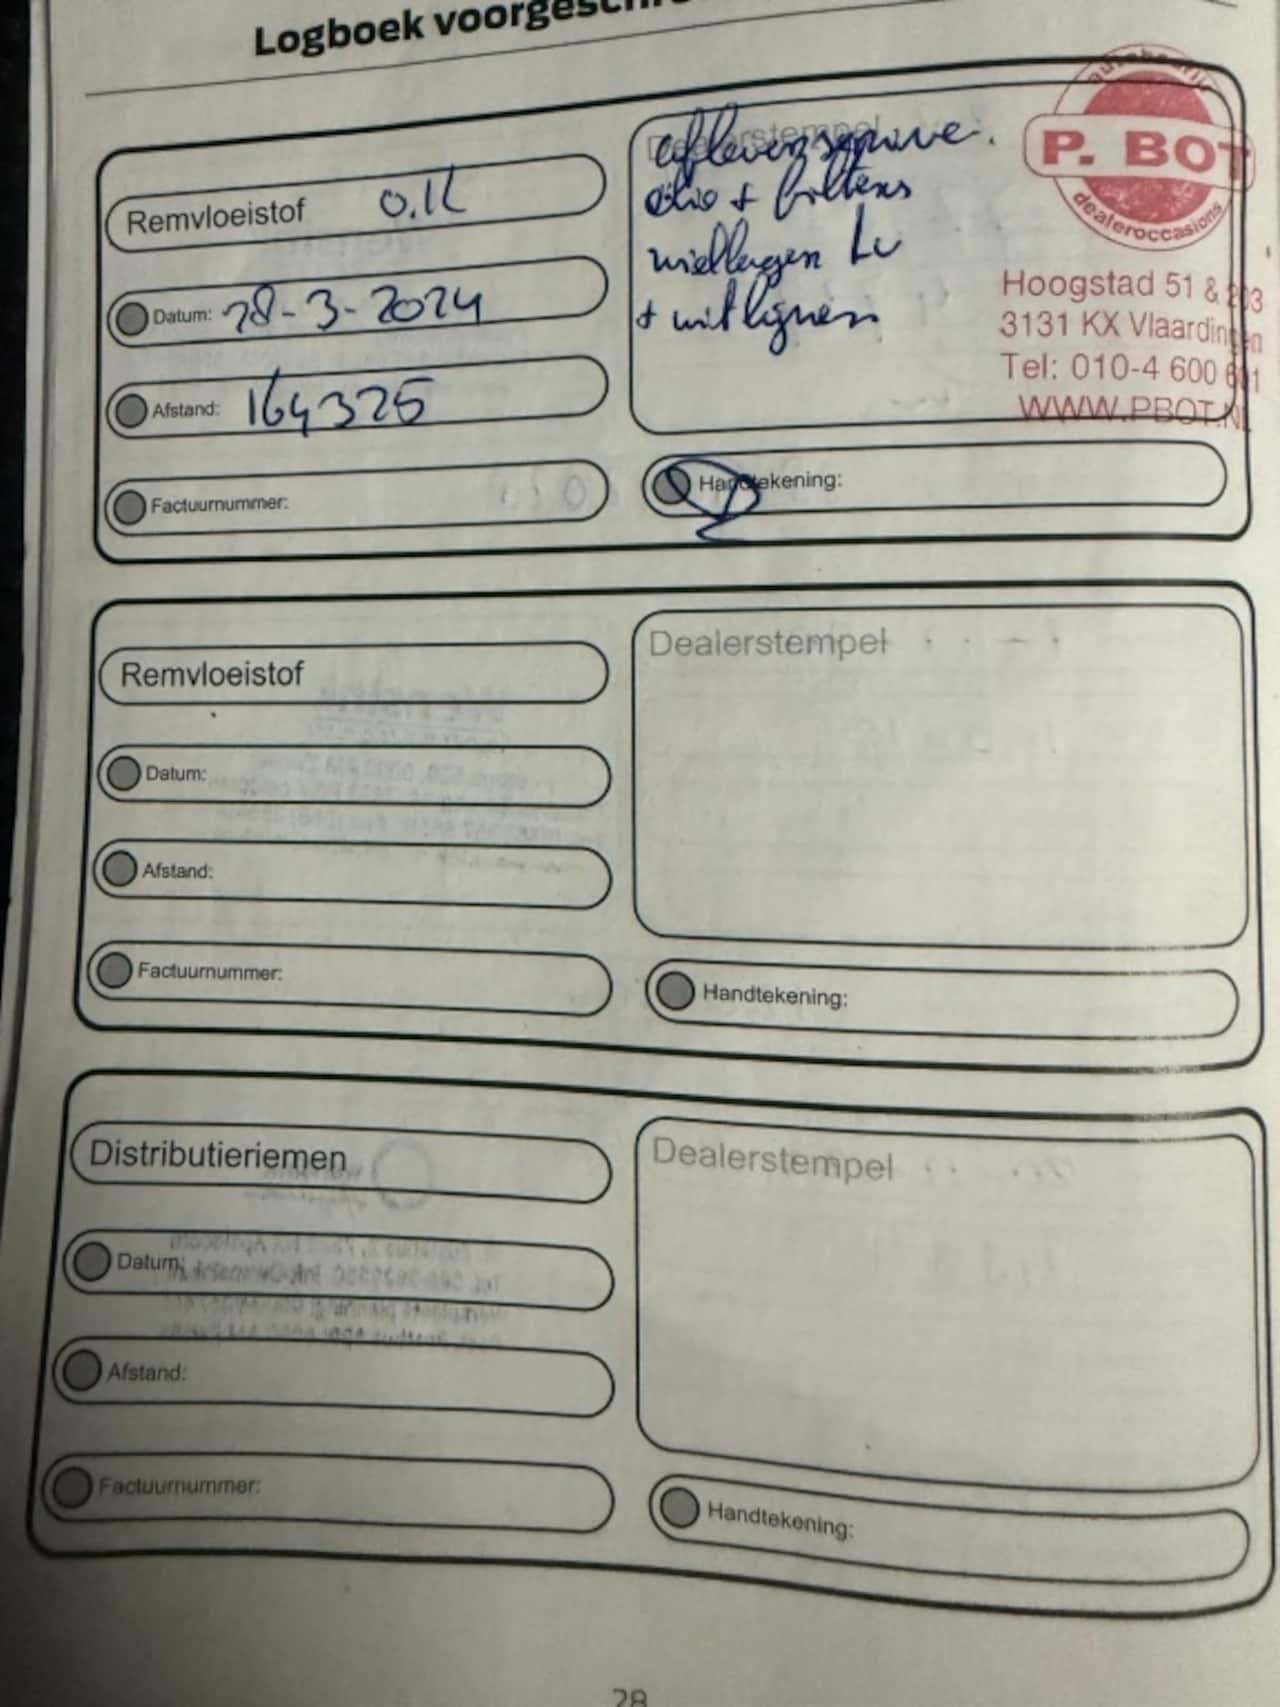 Logboek
Remvloeistof O.K
Datum: 28-3-2024
Afstand: 164325
Factuurnummer:
Dealerstempel
afleverservice.
olie + filters
wiellagers Lv
+ uitlijnen
autobedrijf
P. BOT
dealeroccasions
Hoogstad 51 & 203
3131 KX Vlaardingen
Tel: 010-4 600 601
WWW.PBOT.NL
Handtekening:
Remvloeistof
Datum:
Afstand:
Factuurnummer:
Dealerstempel
Handtekening:
Distributieriemen
Datum:
Afstand:
Factuurnummer:
Dealerstempel
Handtekening:
28